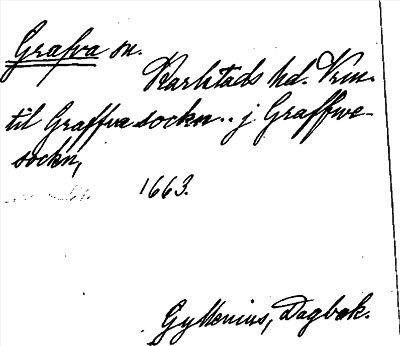 Grafva sn.
Karlstads hd. Vrm.
til Graffva sockn.. j Graffwe-
sockn,
1663.
Gyllenius, Dagbok.